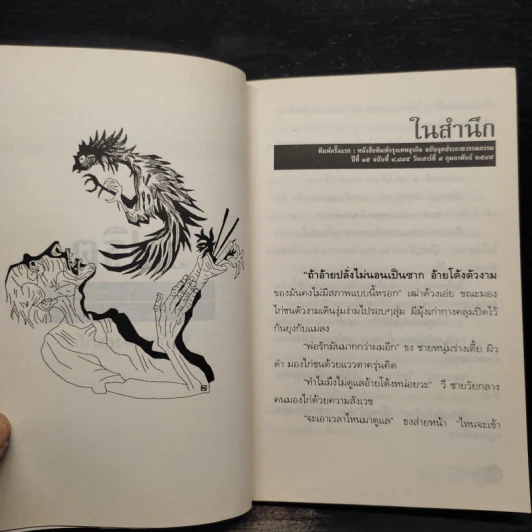 ในสำนึก
พิมพ์ครั้งแรก : หนังสือพิมพ์กรุงเทพธุรกิจ ฉบับจุดประกายวรรณกรรม
ปีที่ ๑๕ ฉบับที่ ๔,๘๔๕ วันเสาร์ที่ ๙ กุมภาพันธ์ ๒๕๔๕
"ถ้าอ้ายปลั่งไม่นอนเป็นซาก อ้ายโด้งตัวงาม
ของมันคงไม่มีสภาพแบบนี้หรอก" เฒ่าด้วงเอ่ย ขณะมอง
ไก่ชนตัวงามเดินงุ่มง่ามไปรอบๆสุ่ม มีมุ้งเก่ากางคลุมปิดไว้
กันยุงกับแมลง
"พ่อรักมันมากกว่าผมอีก" ธง ชายหนุ่มร่างเตี้ย ผิว
ดำ มองไก่ชนด้วยแววตาครุ่นคิด
"ทำไมมึงไม่ดูแลอ้ายโด้งหน่อยวะ" รี ชายวัยกลาง
คนมองไก่ด้วยความสังเวช
"จะเอาเวลาไหนมาดูแล" ธงส่ายหน้า "ไหนจะเข้า